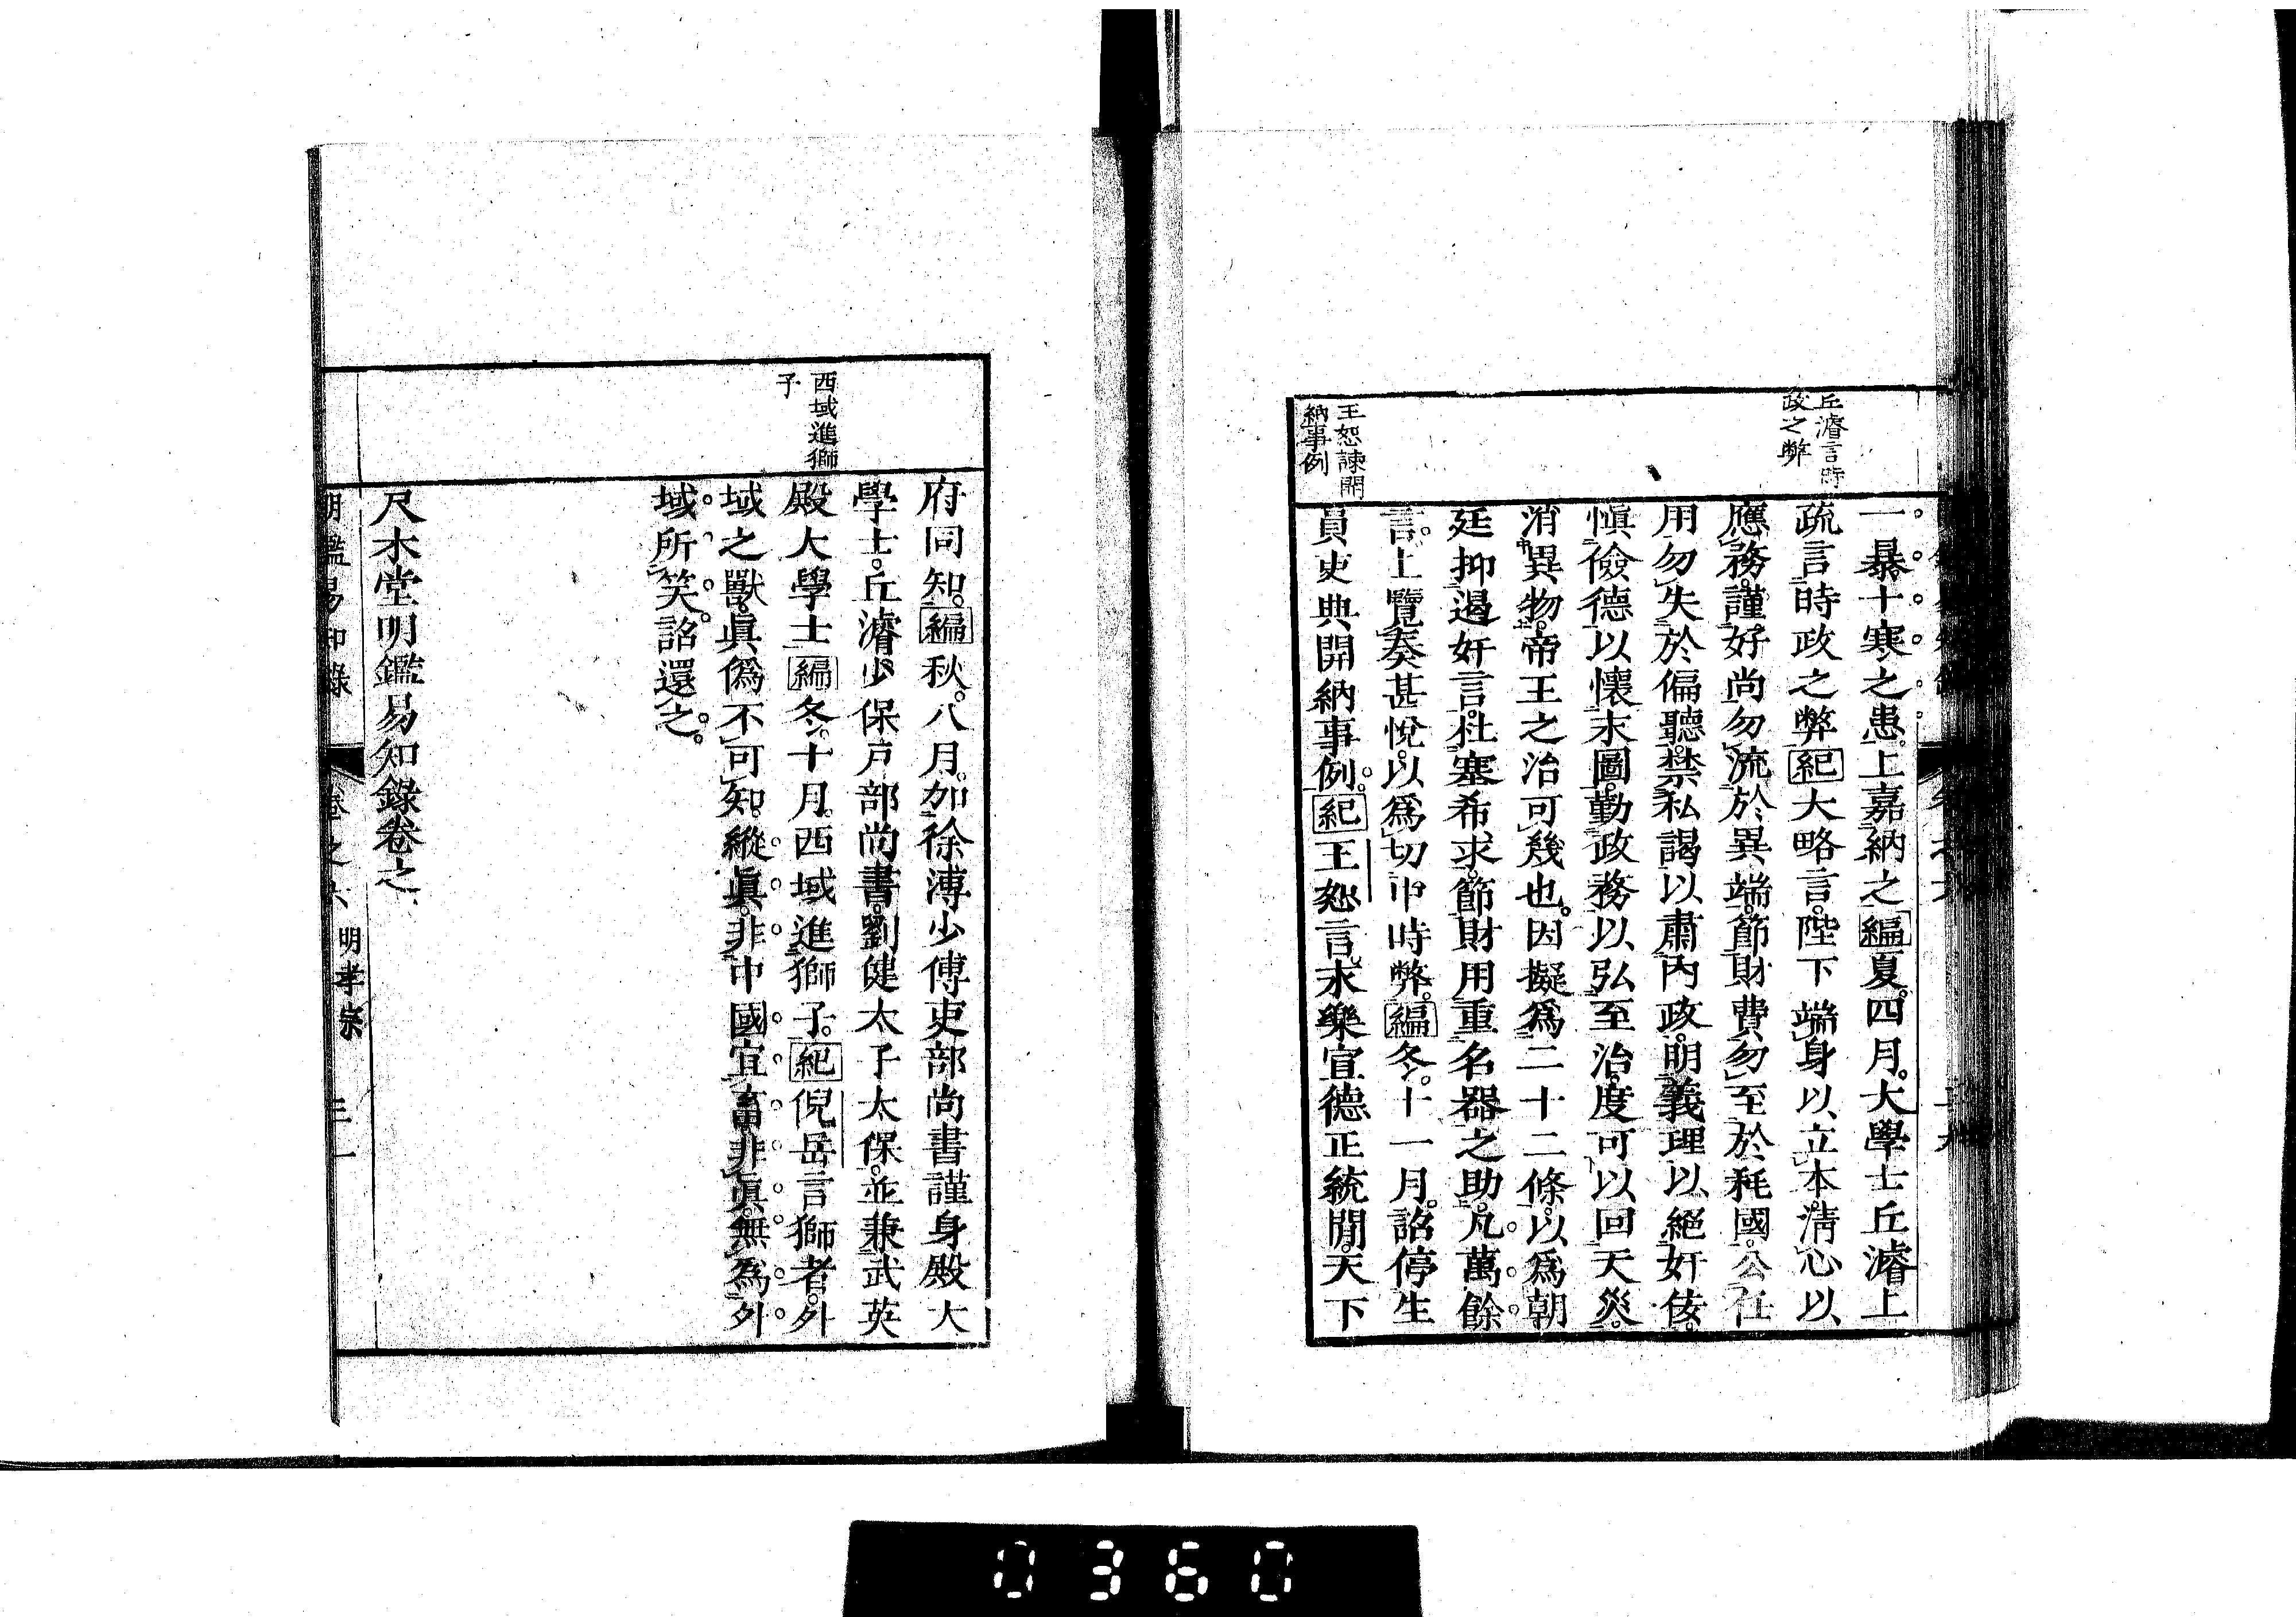 丘濬言時
政之弊
王恕諫開
納事例
一暴十寒之患。上嘉納之編夏。四月。大學士丘濬上
疏言時政之弊紀大略言。陛下端身以立本。清心以
應務。謹好尚勿流於異端。節財費勿至於耗國。公任
用勿失於偏聽。禁私謁以肅內政。明義理以絕奸佞。
愼儉德以懷末圖。勤政務以弘至治。度可以回天災。
消異物。帝王之治可幾也。因擬爲二十二條。以爲朝
延抑遏奸言。杜塞希求。節財用重名器之助。凡萬餘
言。上覽奏甚悅。以爲切中時弊。編冬。十一月。詔停生
員吏典開納事例。紀王恕言永樂宣德正統閒。天下
西域進獅
子
府同知。編秋。八月。加徐溥少傅吏部尚書謹身殿大
學士。丘濬少保戶部尚書。劉健太子太保。並兼武英
殿大學士編冬。十月。西域進獅子。紀倪岳言獅者。外
域之獸。眞僞不可知。縱眞。非中國宜畜。非眞。無爲外
域所笑。詔還之。
尺木堂明鑑易知錄卷之
明鑑易知錄 卷之六 明孝宗